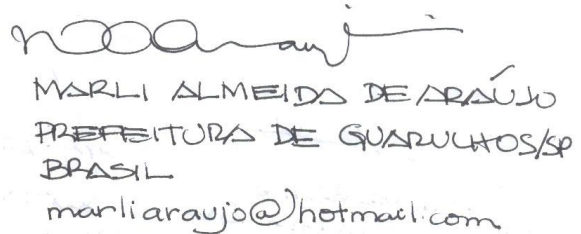 MARLI ALMEIDA DE ARAÚJO
PREFEITURA DE GUARULHOS/SP
BRASIL
marliaraujo@hotmail.com